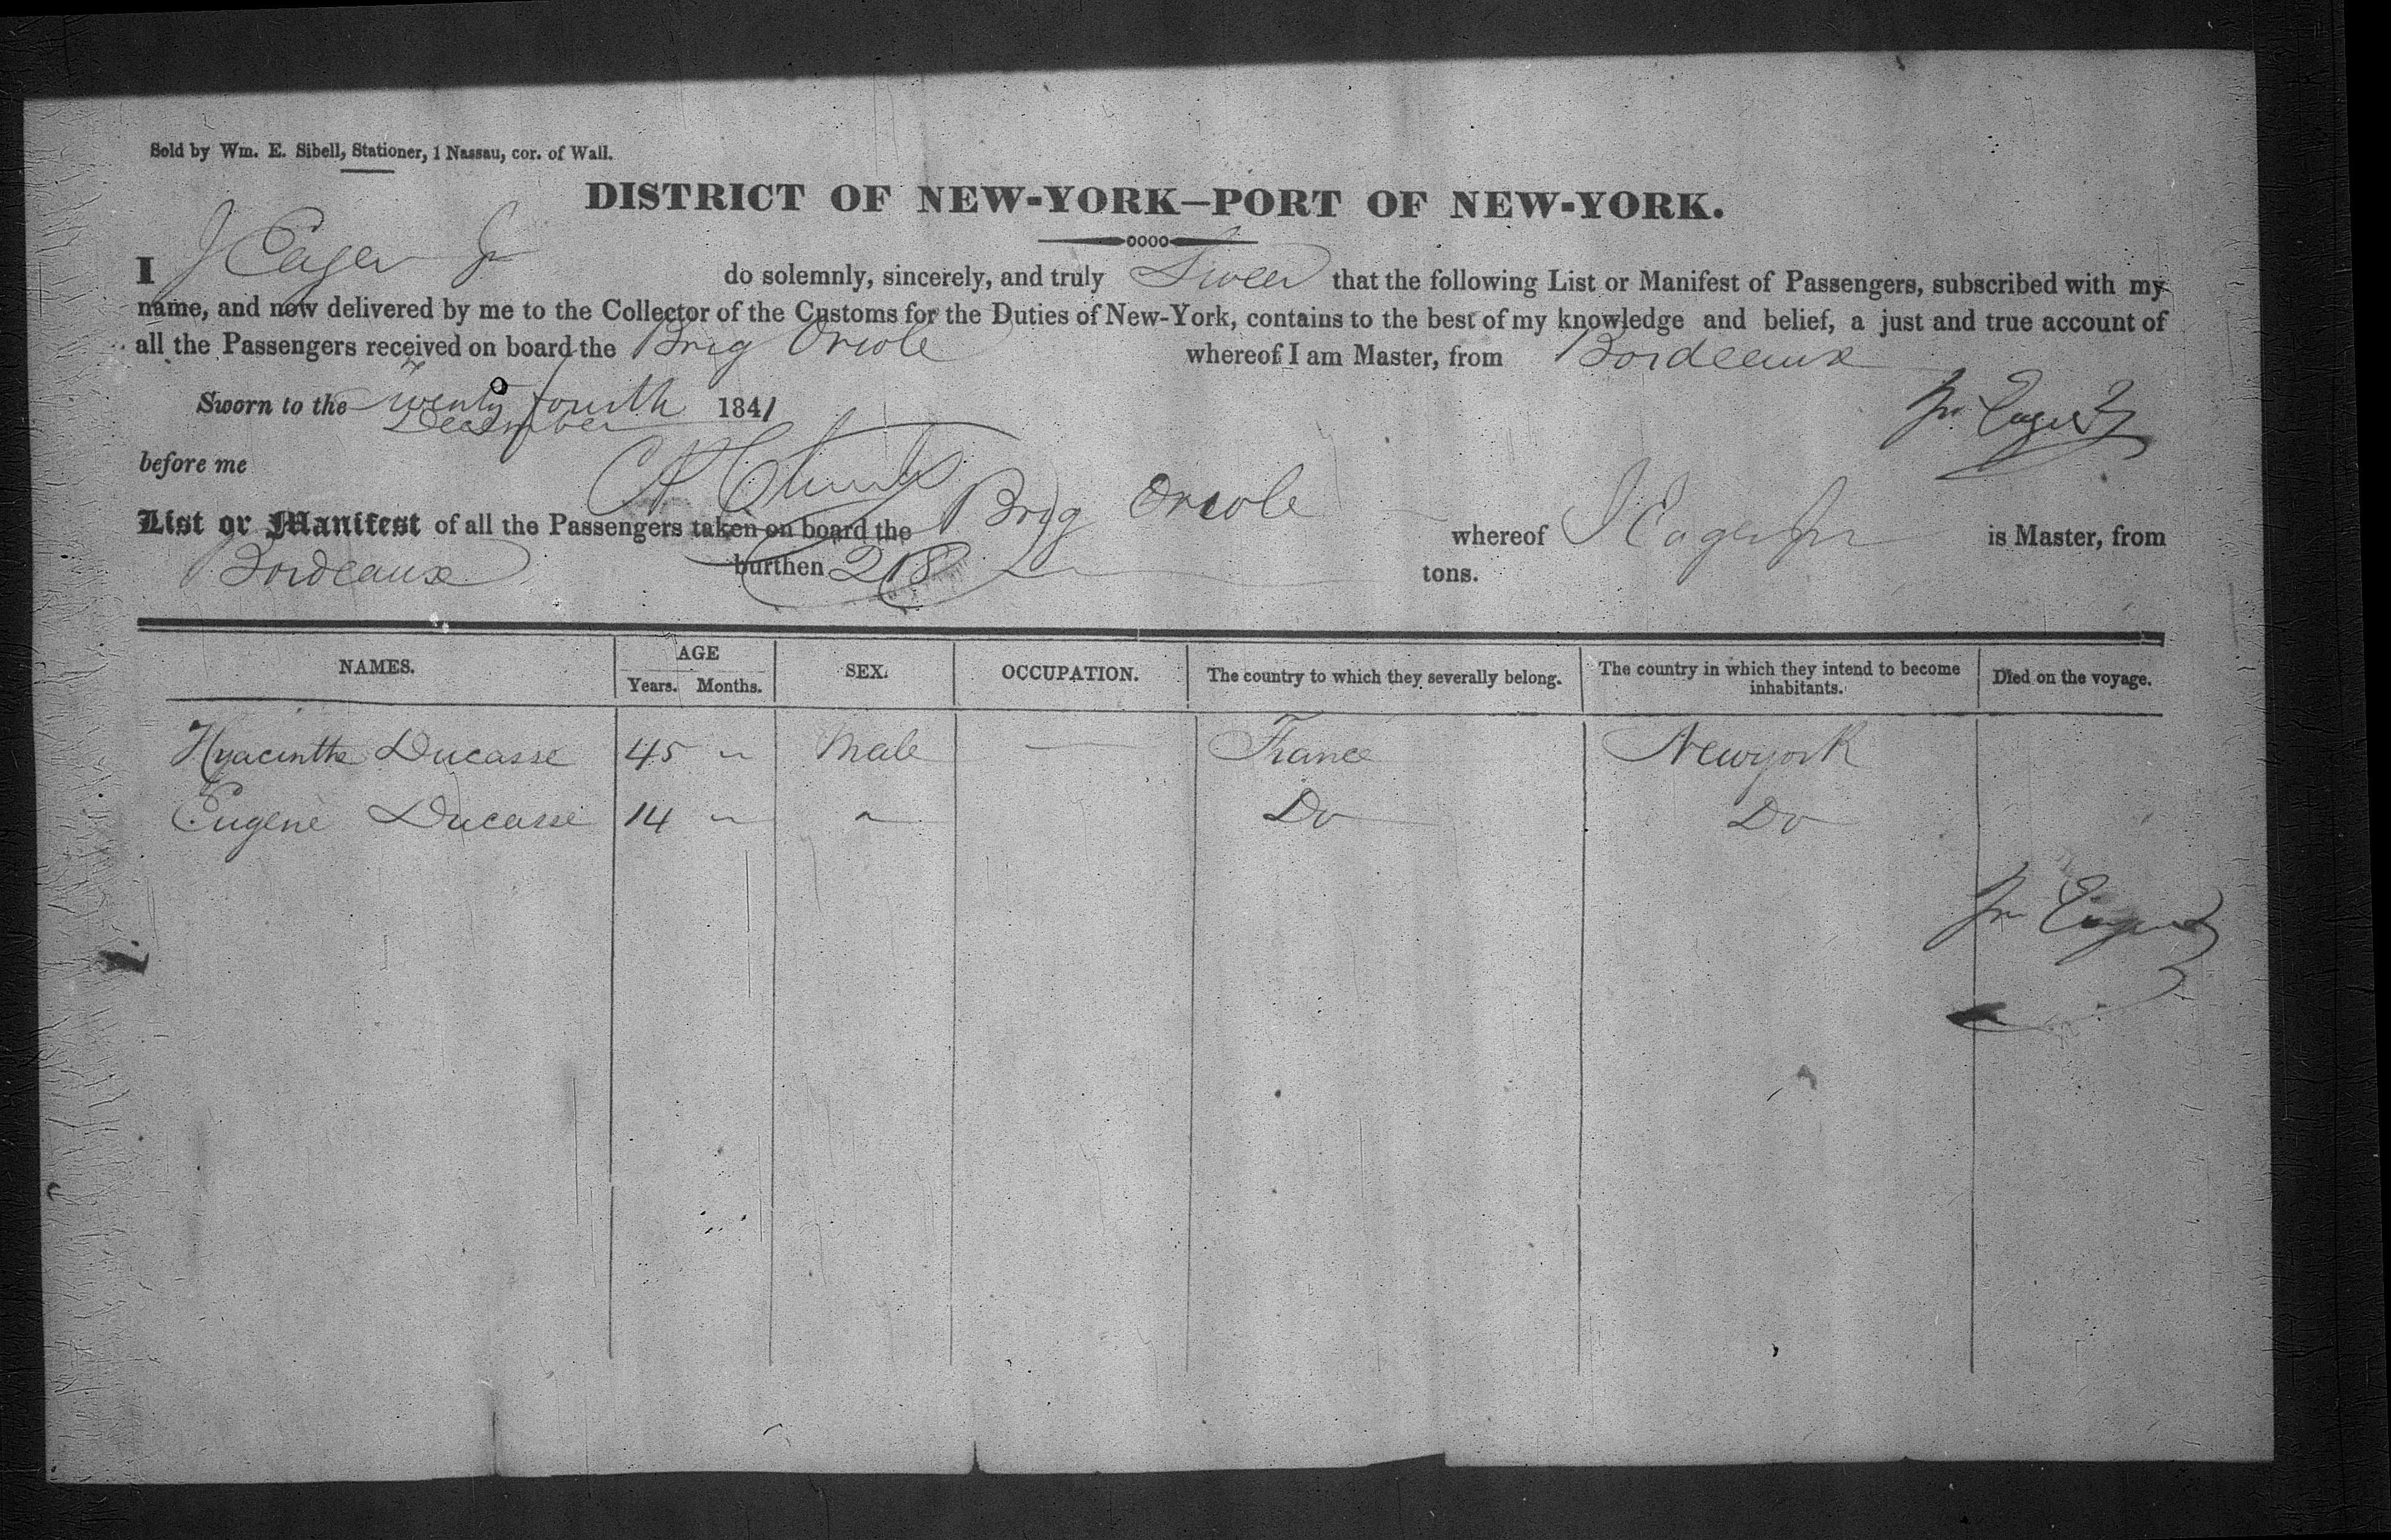 Sold by Wm. E. Sibell, Stationer, 1 Nassau, cor. of Wall.
DISTRICT OF NEW-YORK—PORT OF NEW-YORK.
I J Eager Jr do solemnly, sincerely, and truly Swear that the following List or Manifest of Passengers, subscribed with my
name, and now delivered by me to the Collector of the Customs for the Duties of New-York, contains to the best of my knowledge and belief, a just and true account of
all the Passengers received on board the Brig Oriole whereof I am Master, from Bordeaux
Sworn to the Twenty fourth 1841
December
Jr. Eager
before me
List or Manifest of all the Passengers taken on board the Brig Oriole whereof J Eager Jr is Master, from
Bordeaux burthen 218 tons.
NAMES. AGE SEX. OCCUPATION. The country to which they severally belong. The country in which they intend to become inhabitants. Died on the voyage.
Years. Months.
Hyacinthe Ducasse 45 " Male — France Newyork
Eugene Ducasse 14 " " Do Do
Jr Eager